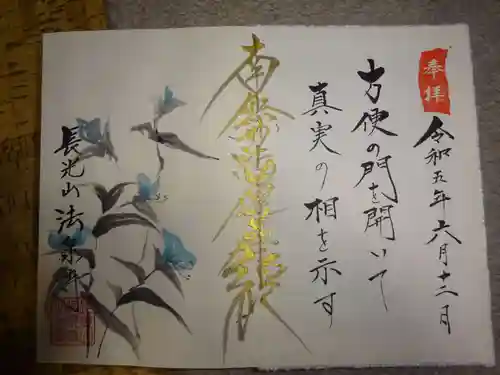 奉拝
令和五年 六月十二日
方便の門を開いて
真実の相を示す
南無妙法蓮華経
長光山 法